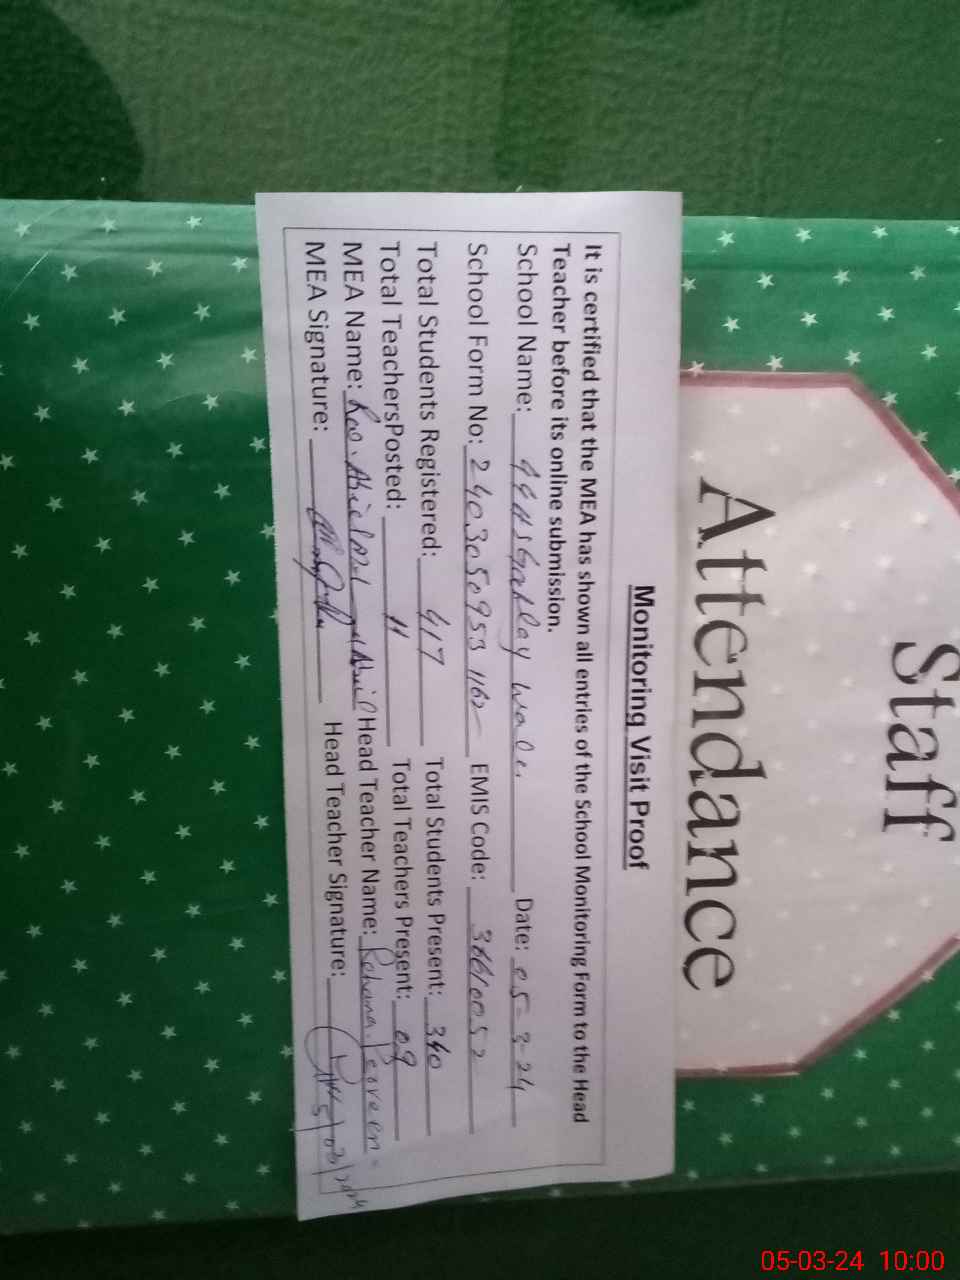 Staff
Attendance
Monitoring Visit Proof
It is certified that the MEA has shown all entries of the School Monitoring Form to the Head
Teacher before its online submission.
School Name: Date: 05-3-24
School Form No: EMIS Code:
Total Students Registered: 417 Total Students Present: 340
Total TeachersPosted: 11 Total Teachers Present: 09
MEA Name: Head Teacher Name: Rehana Perveen
MEA Signature: Head Teacher Signature: 5/03/2024
05-03-24 10:00